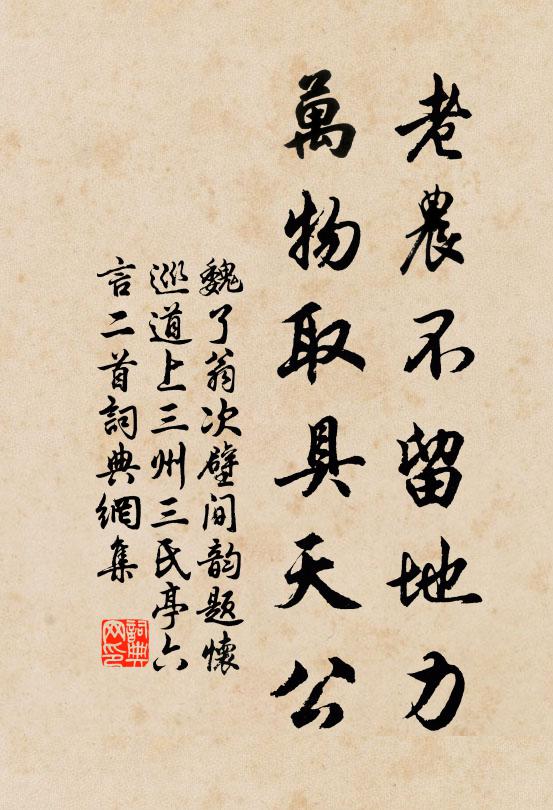 老農不留地力
萬物取具天公
魏了翁次壁間韵題懷
巡道上三州三民亭六
言二首詞典網集
詞典
网印